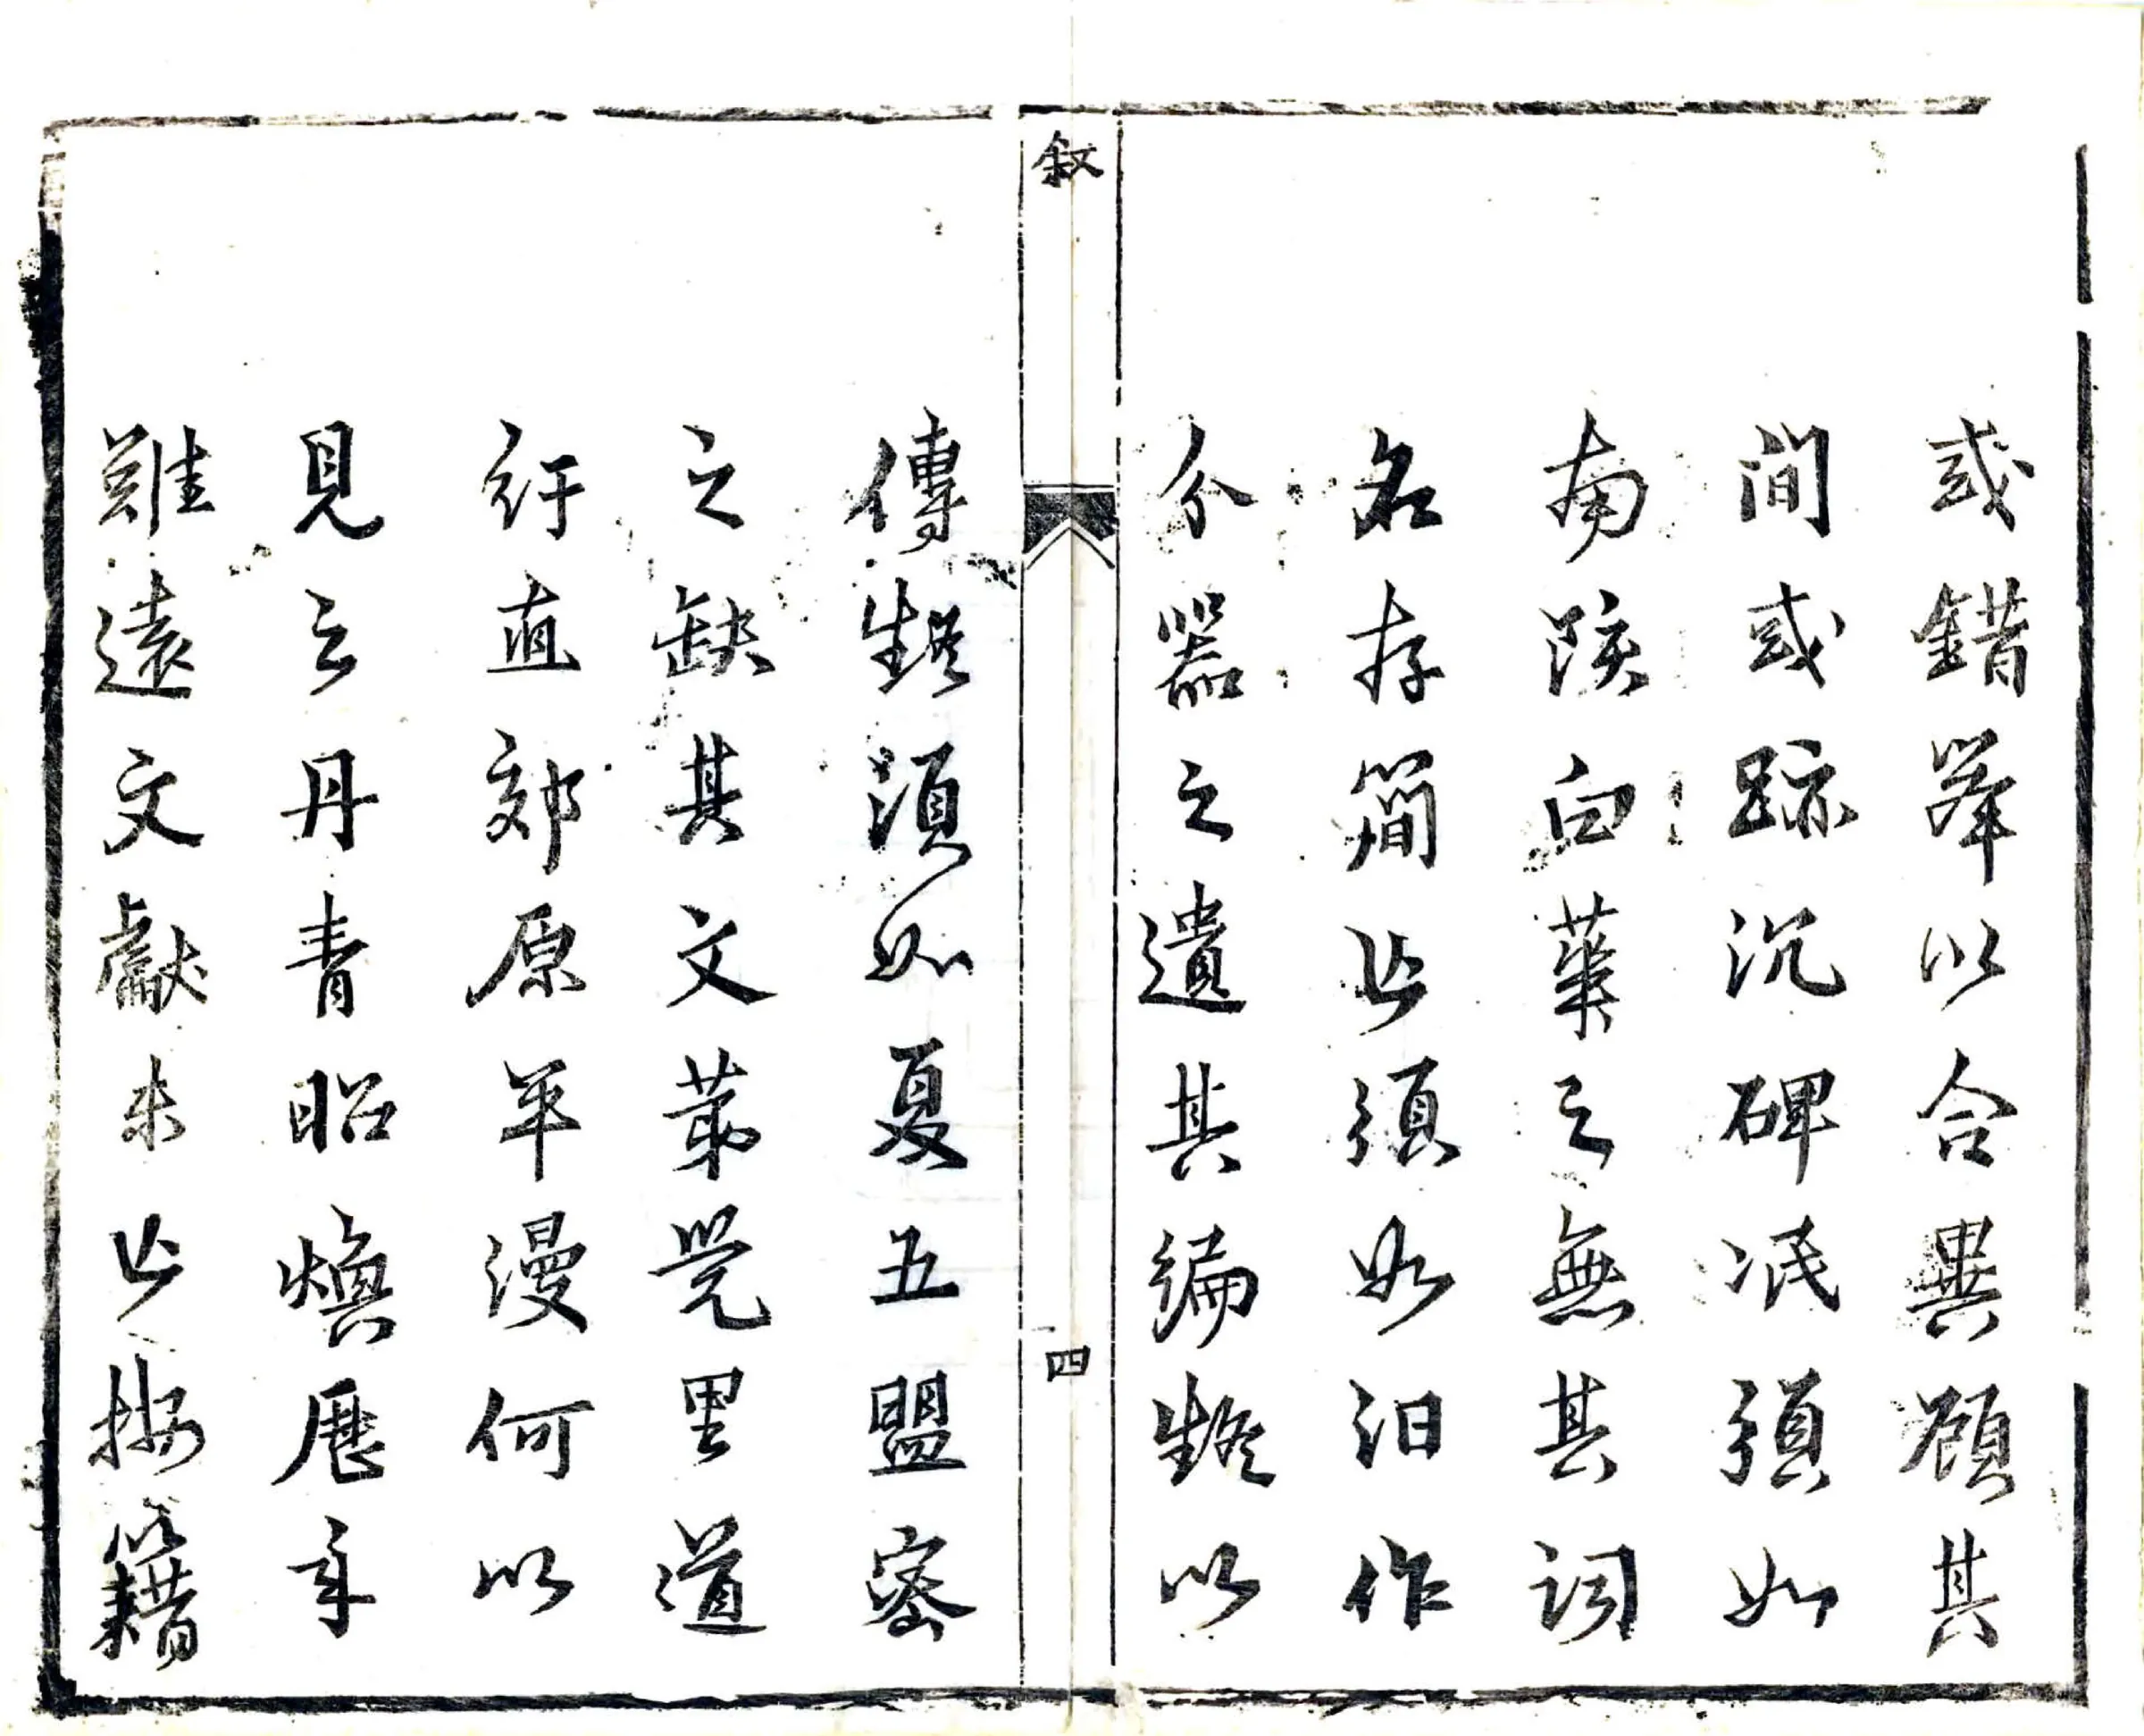 或錯舉以合異顧其
間或跡沉碑泯須如
南陔白華之無其詞
名存簡亾須如汨作
分器之遺其編疑以
叙
四
傳疑須如夏五盟密
之缺其文第覺里道
紆直郊原平漫何以
見之丹青昭煥歷年
雖遠文獻未亾按籍